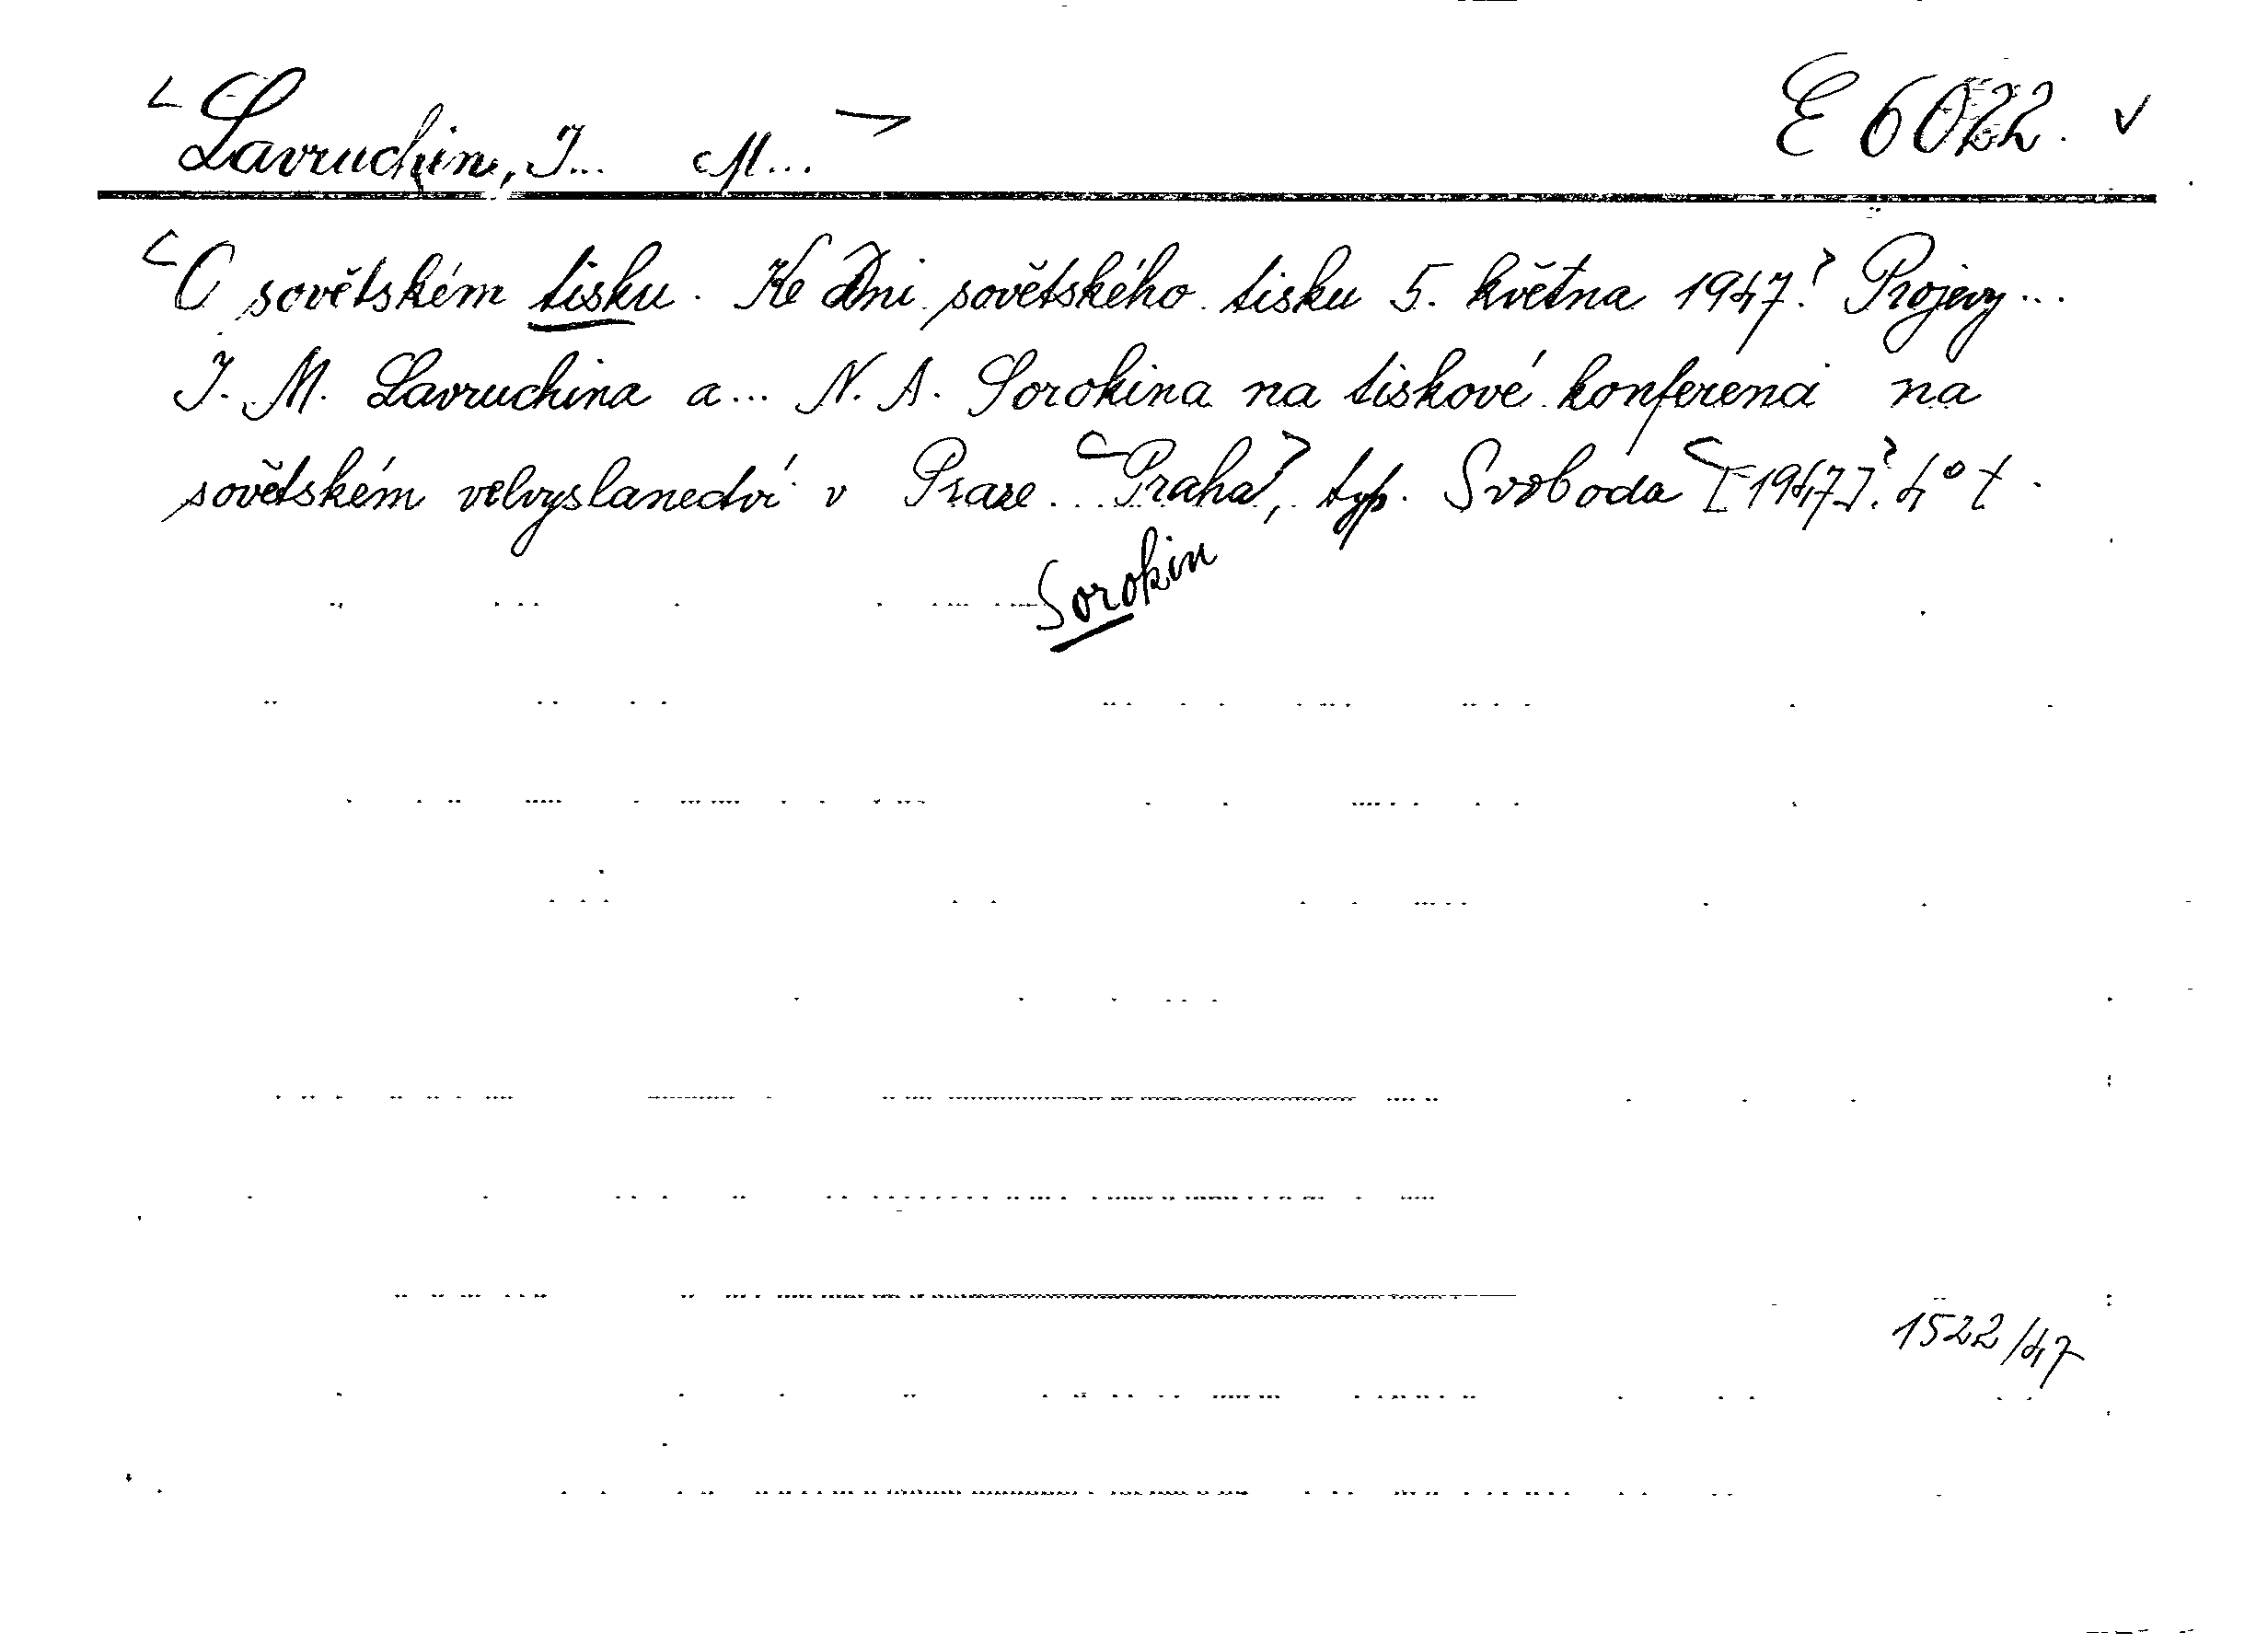 Lavruchin, I... M... E 6022.
O sovětském tisku. Ke Dni sovětského tisku 5. května 1947. Projevy...
I. M. Lavruchina a... N. A. Sorokina na tiskové konferenci na
sovětském velvyslanectví v Praze. Praha, typ. Svoboda [1947]. 4°
Sorokin
1522/47